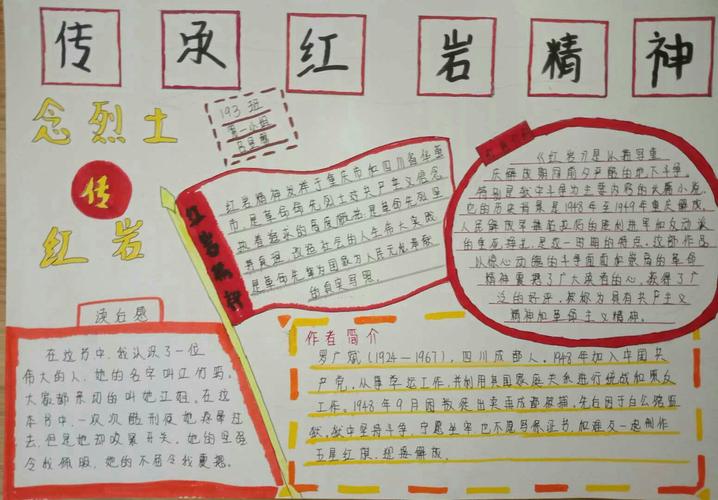 传承红岩精神
念烈士
传
红岩
193班
第一小组
红岩精神
红岩精神发祥于重庆市和四川省华蓥
市,是革命先烈士对共产主义信念
执着追求的高度概括是革命先烈坚
是革命先辈为国家为人民无私奉献
的真实写照
《红岩》是从着写重
庆解放期间敌夕严酷的地下斗争,
特别是狱中斗争为主要内容的长篇小说,
它的历史背景是1948年至1949年重庆解放,
的垂死挣扎,是这一时期的特点,这部作品
以惊心动魄的斗争画面和崇高的革命
精神震撼了广大读者的心,获得了广
泛的好评,被称为具有共产主义
精神和革命主义精神。
读后感
在这书中,我认识了一位
伟大的人,她的名字叫江竹筠。
大家都亲切的叫她江姐。在这
本书中,一次次酷刑使她疼晕过
去,但是她却咬紧牙关。她的坚强
令我佩服,她的不屈令我震撼。
作者简介
罗广斌(1924—1967),四川成都人。1948年加入中国共
产党,从事学运工作,并利用其国家庭关系进行统战和策反
工作。1948年9月因叛徒出卖在成都被捕。先后囚于白公馆监
狱,狱中坚持斗争,宁愿坐牢也不愿写保证书,如难友一起制作
五星红旗,迎接解放。